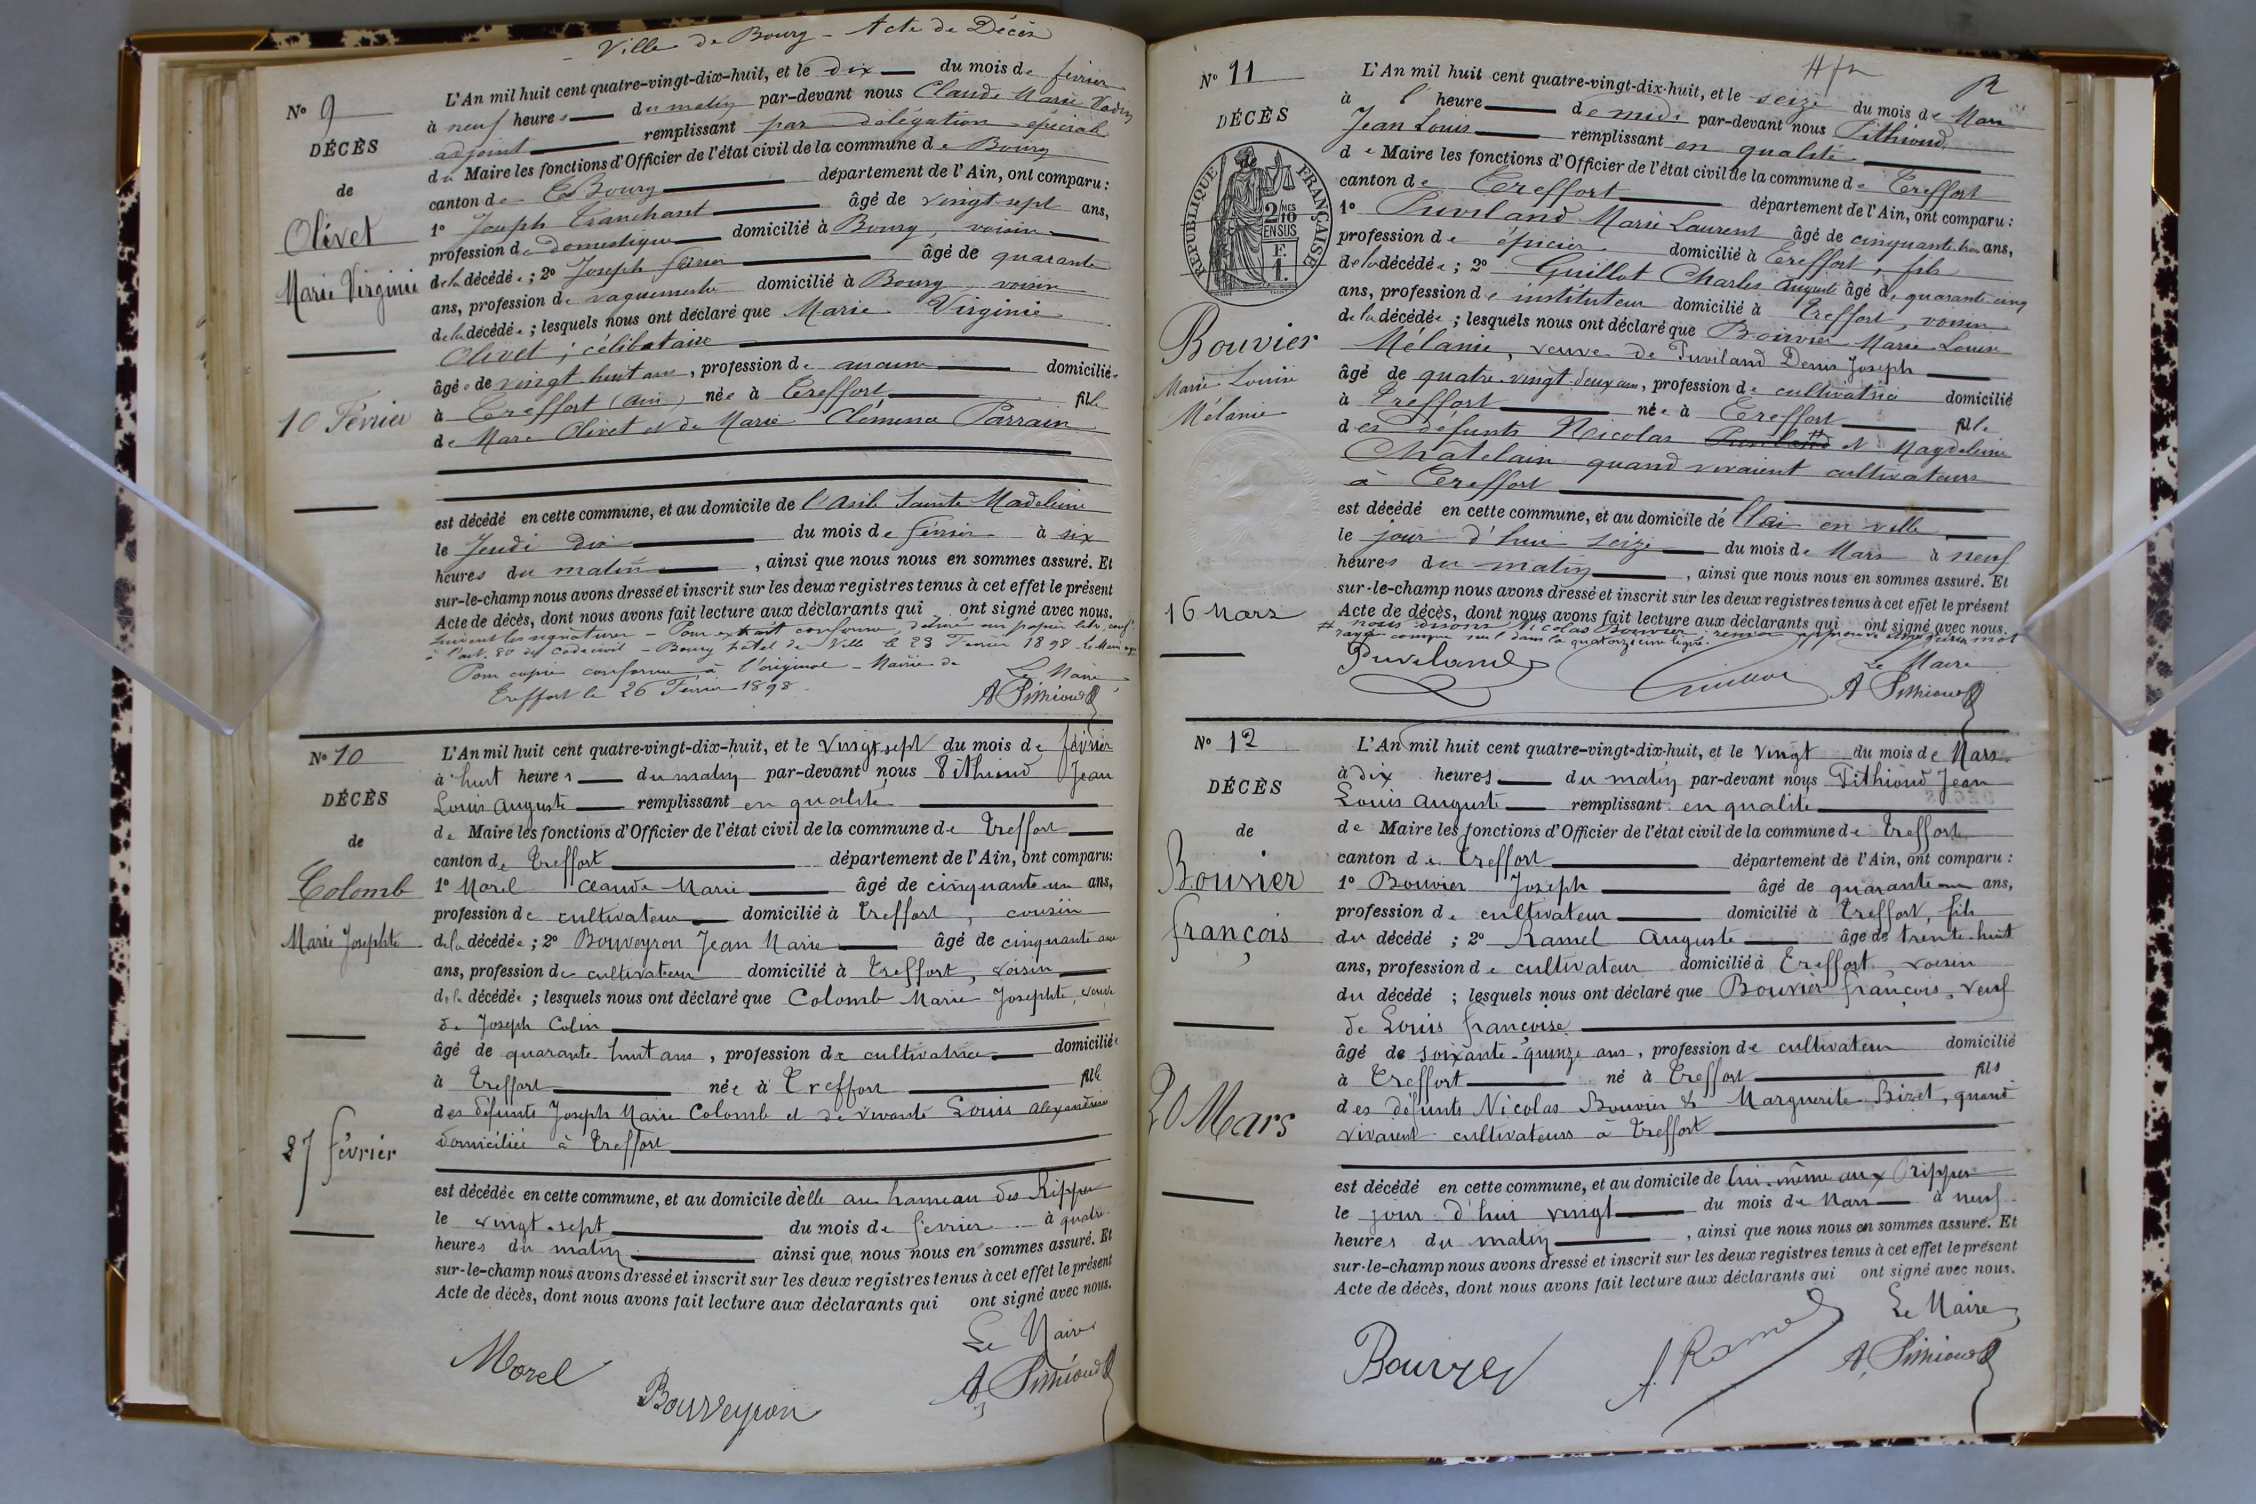 Ville de Bourg - Acte de Décès
No 9
DÉCÈS
de
Olivet
Marie Virginie
10 Février
L'An mil huit cent quatre-vingt-dix-huit, et le dix du mois de février
à neuf heures du matin par-devant nous Claude Marie
adjoint remplissant par délégation spéciale
du Maire les fonctions d'Officier de l'état civil de la commune de Bourg
canton de Bourg département de l'Ain, ont comparu :
1o Joseph Tranchant âgé de vingt-sept ans,
profession de domestique domicilié à Bourg, voisin
de la décédée ; 2o Joseph âgé de quarante
ans, profession de vaguemestre domicilié à Bourg, voisin
de la décédée ; lesquels nous ont déclaré que Marie Virginie
Olivet, célibataire
âgée de vingt huit ans, profession de aucune domiciliée
à Treffort (Ain) née à Treffort fille
de Marc Olivet et de Marie Clémence Parrain
est décédé en cette commune, et au domicile de l'asile Sainte Madeleine
le Jeudi dix du mois de février à six
heures du matin, ainsi que nous nous en sommes assuré. Et
sur-le-champ nous avons dressé et inscrit sur les deux registres tenus à cet effet le présent
Acte de décès, dont nous avons fait lecture aux déclarants qui ont signé avec nous.
Suivent les signatures - Pour extrait conforme, délivré sur papier libre, conf.
à l'art. 80 du Code civil - Bourg hôtel de Ville le 23 Février 1898 - Le Maire
Pour copie conforme à l'original - Mairie de
Treffort le 26 Février 1898. Le Maire
A Pithioud
No 10
DÉCÈS
de
Colomb
Marie Josephte
27 février
L'An mil huit cent quatre-vingt-dix-huit, et le vingt sept du mois de février
à huit heures du matin par-devant nous Pithioud Jean
Louis Auguste remplissant en qualité
de Maire les fonctions d'Officier de l'état civil de la commune de Treffort
canton de Treffort département de l'Ain, ont comparu :
1o Morel Claude Marie âgé de cinquante-un ans,
profession de cultivateur domicilié à Treffort, cousin
de la décédée ; 2o Bouveyron Jean Marie âgé de cinquante ans
ans, profession de cultivateur domicilié à Treffort, voisin
de la décédée ; lesquels nous ont déclaré que Colomb Marie Josephte, veuve
de Joseph Colin
âgé de quarante-huit ans, profession de cultivatrice domiciliée
à Treffort née à Treffort fille
des défunts Joseph Marie Colomb et de vivante Louis Alexandrine
domiciliée à Treffort
est décédée en cette commune, et au domicile d'elle au hameau des Rippes
le vingt-sept du mois de février à quatre
heures du matin ainsi que nous nous en sommes assuré. Et
sur-le-champ nous avons dressé et inscrit sur les deux registres tenus à cet effet le présent
Acte de décès, dont nous avons fait lecture aux déclarants qui ont signé avec nous.
Le Maire
Morel Bouveyron A. Pithioud
No 11
DÉCÈS
RÉPUBLIQUE FRANÇAISE
2/10 MES
EN SUS
F.
1.
Bouvier
Marie Louise
Mélanie
16 Mars
L'An mil huit cent quatre-vingt-dix-huit, et le seize du mois de Mars
à 1 heure de midi par-devant nous Pithioud
Jean Louis remplissant en qualité
de Maire les fonctions d'Officier de l'état civil de la commune de Treffort
canton de Treffort département de l'Ain, ont comparu :
1o Puviland Marie Laurent âgé de cinquante-trois ans,
profession de épicier domicilié à Treffort, fils
de la décédée ; 2o Guillot Charles Auguste âgé de quarante-cinq
ans, profession de instituteur domicilié à Treffort, voisin
de la décédée ; lesquels nous ont déclaré que Bouvier Marie Louise
Mélanie, veuve de Puviland Denis Joseph
âgé de quatre-vingt-deux ans, profession de cultivatrice domicilié
à Treffort née à Treffort fille
des défunts Nicolas Puviland et Magdeleine
Chatelain quand vivaient cultivateurs
à Treffort
est décédé en cette commune, et au domicile de en ville
le jour d'hui seize du mois de Mars à neuf
heures du matin, ainsi que nous nous en sommes assuré. Et
sur-le-champ nous avons dressé et inscrit sur les deux registres tenus à cet effet le présent
Acte de décès, dont nous avons fait lecture aux déclarants qui ont signé avec nous.
# nous disons Nicolas Bouvier, renvoi approuvé mot
rayé comme nul dans la quatorzième ligne.
Puviland Guillot Le Maire
A Pithioud
No 12
DÉCÈS
de
Bouvier
françois
20 Mars
L'An mil huit cent quatre-vingt-dix-huit, et le vingt du mois de Mars
à dix heures du matin par-devant nous Pithioud Jean
Louis Auguste remplissant en qualité
de Maire les fonctions d'Officier de l'état civil de la commune de Treffort
canton de Treffort département de l'Ain, ont comparu :
1o Bouvier Joseph âgé de quarante-un ans,
profession de cultivateur domicilié à Treffort, fils
du décédé ; 2o Ramel Auguste âgé de trente-huit
ans, profession de cultivateur domicilié à Treffort, voisin
du décédé ; lesquels nous ont déclaré que Bouvier françois, veuf
de Louis françoise
âgé de soixante-quinze ans, profession de cultivateur domicilié
à Treffort né à Treffort fils
des défunts Nicolas Bouvier & Marguerite Bizet, quand
vivaient cultivateurs à Treffort
est décédé en cette commune, et au domicile de lui-même aux Rippes
le jour d'hui vingt du mois de Mars à neuf
heures du matin, ainsi que nous nous en sommes assuré. Et
sur-le-champ nous avons dressé et inscrit sur les deux registres tenus à cet effet le présent
Acte de décès, dont nous avons fait lecture aux déclarants qui ont signé avec nous.
Le Maire
Bouvier A. Ramel A. Pithioud